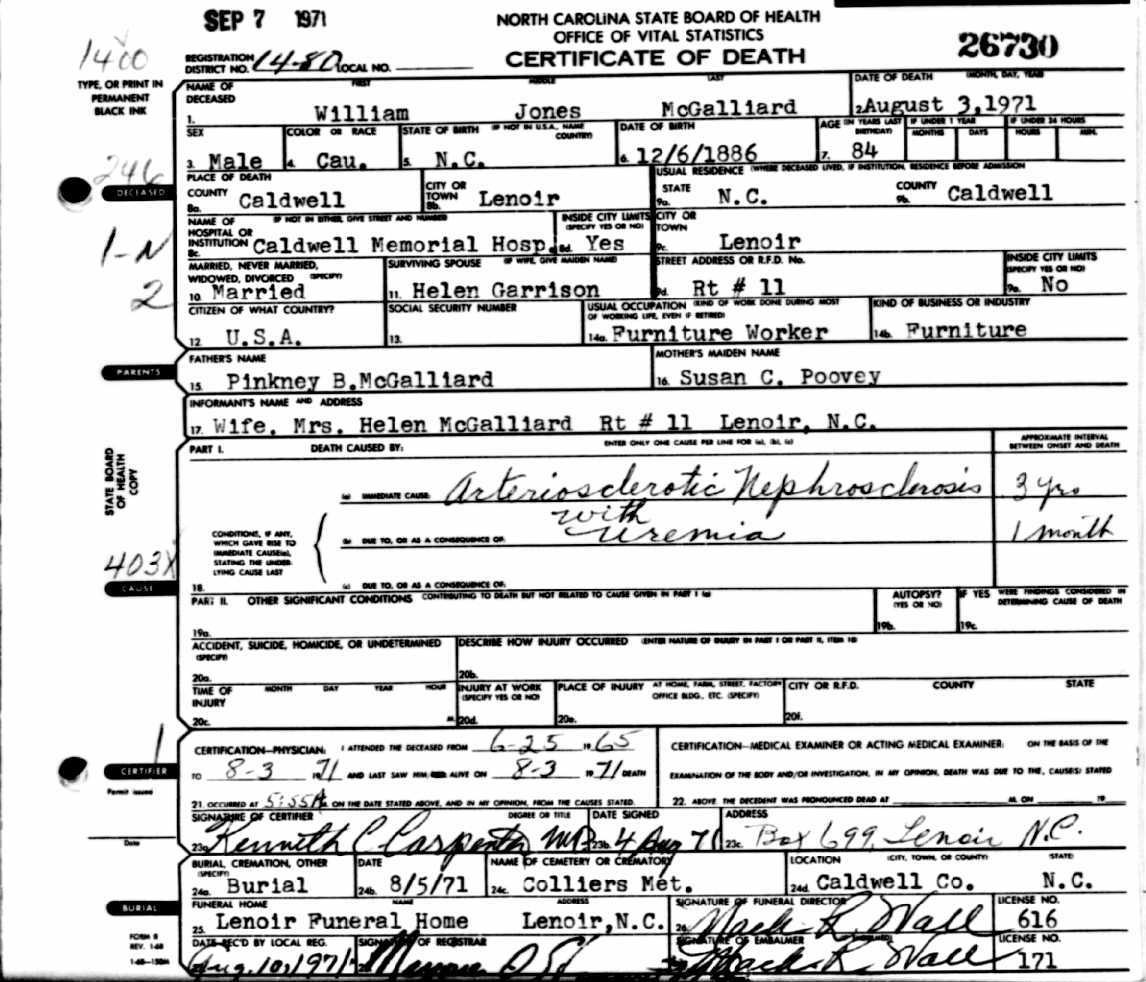 SEP 7 1971
NORTH CAROLINA STATE BOARD OF HEALTH
OFFICE OF VITAL STATISTICS
CERTIFICATE OF DEATH
26730
1400
REGISTRATION DISTRICT NO. 14-80 LOCAL NO.
TYPE, OR PRINT IN PERMANENT BLACK INK
NAME OF DECEASED FIRST MIDDLE LAST DATE OF DEATH (MONTH, DAY, YEAR)
1. William Jones McGalliard 2. August 3, 1971
SEX COLOR OR RACE STATE OF BIRTH (IF NOT IN U.S.A., NAME COUNTRY) DATE OF BIRTH AGE (IN YEARS LAST BIRTHDAY) IF UNDER 1 YEAR MONTHS DAYS IF UNDER 24 HOURS HOURS MIN.
3. Male 4. Cau. 5. N.C. 6. 12/6/1886 7. 84
246
DECEASED
PLACE OF DEATH USUAL RESIDENCE (WHERE DECEASED LIVED, IF INSTITUTION, RESIDENCE BEFORE ADMISSION
COUNTY 8a. Caldwell CITY OR TOWN 8b. Lenoir STATE 9a. N.C. COUNTY 9b. Caldwell
NAME OF HOSPITAL OR INSTITUTION IF NOT IN EITHER, GIVE STREET AND NUMBER INSIDE CITY LIMITS (SPECIFY YES OR NO) CITY OR TOWN
8c. Caldwell Memorial Hosp. 8d. Yes 9c. Lenoir
1-N
2
MARRIED, NEVER MARRIED, WIDOWED, DIVORCED (SPECIFY) SURVIVING SPOUSE (IF WIFE, GIVE MAIDEN NAME) STREET ADDRESS OR R.F.D. No. INSIDE CITY LIMITS (SPECIFY YES OR NO)
10. Married 11. Helen Garrison 9d. Rt # 11 9e. No
CITIZEN OF WHAT COUNTRY? SOCIAL SECURITY NUMBER USUAL OCCUPATION (KIND OF WORK DONE DURING MOST OF WORKING LIFE, EVEN IF RETIRED) KIND OF BUSINESS OR INDUSTRY
12. U.S.A. 13. 14a. Furniture Worker 14b. Furniture
PARENTS
FATHER'S NAME MOTHER'S MAIDEN NAME
15. Pinkney B.McGalliard 16. Susan C. Poovey
INFORMANT'S NAME AND ADDRESS
17. Wife, Mrs. Helen McGalliard Rt # 11 Lenoir, N.C.
STATE BOARD OF HEALTH COPY
PART I. DEATH CAUSED BY: ENTER ONLY ONE CAUSE PER LINE FOR (a), (b), (c) APPROXIMATE INTERVAL BETWEEN ONSET AND DEATH
(a) IMMEDIATE CAUSE: Arteriosclerotic Nephrosclerosis 3 yrs
with
CONDITIONS, IF ANY, WHICH GAVE RISE TO IMMEDIATE CAUSE(a), STATING THE UNDERLYING CAUSE LAST
(b) DUE TO, OR AS A CONSEQUENCE OF: Uremia 1 month
403X
CAUSE
18. (c) DUE TO, OR AS A CONSEQUENCE OF:
PART II. OTHER SIGNIFICANT CONDITIONS CONTRIBUTING TO DEATH BUT NOT RELATED TO CAUSE GIVEN IN PART I (a) AUTOPSY? (YES OR NO) IF YES WERE FINDINGS CONSIDERED IN DETERMINING CAUSE OF DEATH
19a. 19b. 19c.
ACCIDENT, SUICIDE, HOMICIDE, OR UNDETERMINED (SPECIFY) DESCRIBE HOW INJURY OCCURRED (ENTER NATURE OF INJURY IN PART I OR PART II, ITEM 18)
20a. 20b.
TIME OF INJURY MONTH DAY YEAR HOUR INJURY AT WORK (SPECIFY YES OR NO) PLACE OF INJURY AT HOME, FARM, STREET, FACTORY OFFICE BLDG., ETC. (SPECIFY) CITY OR R.F.D. COUNTY STATE
20c. M. 20d. 20e. 20f.
1
CERTIFIER
Permit issued
Date
CERTIFICATION—PHYSICIAN: I ATTENDED THE DECEASED FROM 6-25 1965
TO 8-3 1971 AND LAST SAW HIM ALIVE ON 8-3 1971 DEATH
21. OCCURRED AT 5:55A M. ON THE DATE STATED ABOVE, AND IN MY OPINION, FROM THE CAUSES STATED.
CERTIFICATION—MEDICAL EXAMINER OR ACTING MEDICAL EXAMINER: ON THE BASIS OF THE
EXAMINATION OF THE BODY AND/OR INVESTIGATION, IN MY OPINION, DEATH WAS DUE TO THE, CAUSE(S) STATED
22. ABOVE. THE DECEDENT WAS PRONOUNCED DEAD AT M. ON 19
SIGNATURE OF CERTIFIER DEGREE OR TITLE DATE SIGNED ADDRESS
23a. Kenneth C Carpenter MD 23b. 4 Aug 71 23c. Box 699, Lenoir N.C.
BURIAL, CREMATION, OTHER (SPECIFY) DATE NAME OF CEMETERY OR CREMATORY LOCATION (CITY, TOWN, OR COUNTY) (STATE)
24a. Burial 24b. 8/5/71 24c. Colliers Met. 24d. Caldwell Co. N.C.
BURIAL
FUNERAL HOME NAME ADDRESS SIGNATURE OF FUNERAL DIRECTOR LICENSE NO.
25. Lenoir Funeral Home Lenoir,N.C. 26. Mack R. Wall 616
FORM 8
REV. 1-68
1-68—150M
DATE REC'D BY LOCAL REG. SIGNATURE OF REGISTRAR SIGNATURE OF EMBALMER LICENSE NO.
Aug. 10, 1971 Mack R. Wall 171